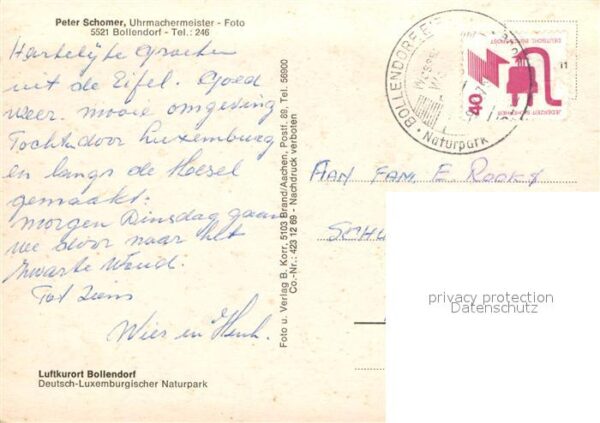 Peter Schomer, Uhrmachermeister - Foto
5521 Bollendorf - Tel.: 246
Hartelijke Groeten
uit de Eifel. Goed
weer. mooie omgeving
Tocht door Luxemburg
en langs de Moesel
gemaakt.
morgen Dinsdag gaan
we door naar het
Zwarte Woud.
Tot ziens
Wies en Henk.
Luftkurort Bollendorf
Deutsch-Luxemburgischer Naturpark
Foto u. Verlag B. Korr, 5103 Brand/Aachen, Postf. 89, Tel. 56900
Co.-Nr.: 423 12 69 - Nachdruck verboten
BOLLENDORF-EIFEL
Naturpark
DEUTSCHE BUNDESPOST
40
JEDERZEIT SICHERHEIT
AAN FAM. E. ROOKS
SCHU
privacy protection
Datenschutz